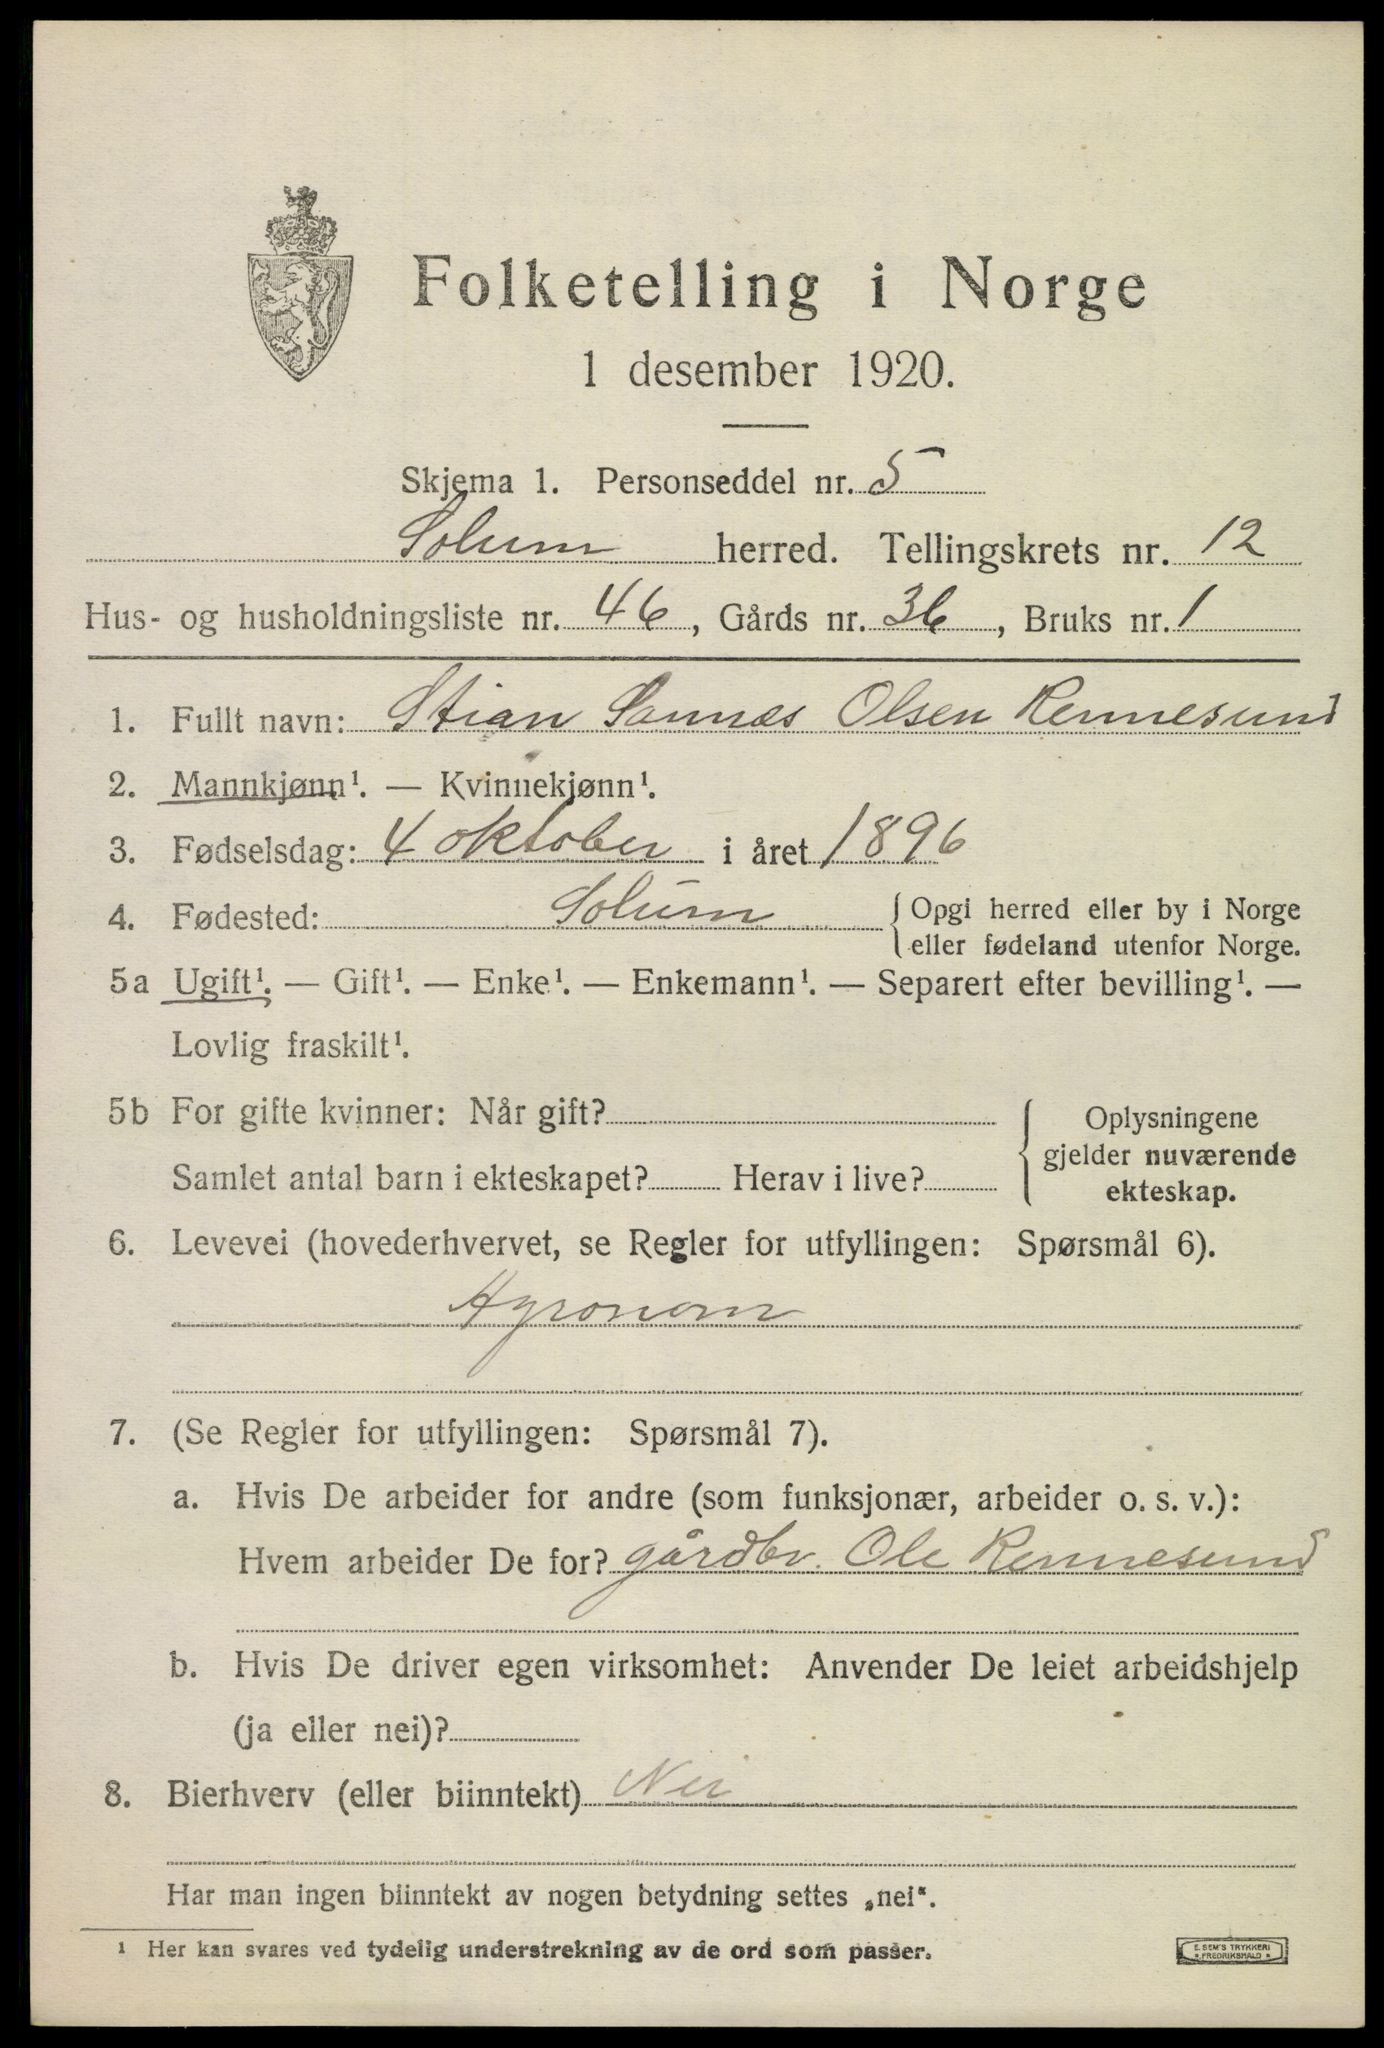 Folketelling i Norge
1 desember 1920.
Skjema 1. Personseddel nr. 5
Solum herred. Tellingskrets nr. 12
Hus- og husholdningsliste nr. 46, Gårds nr. 36, Bruks nr. 1
1. Fullt navn: Stian Sannæs Olsen Rennesund
2. Mannkjønn¹. — Kvinnekjønn¹.
3. Fødselsdag: 4 oktober i året 1896
4. Fødested: Solum { Opgi herred eller by i Norge
eller fødeland utenfor Norge.
5a Ugift¹. — Gift¹. — Enke¹. — Enkemann¹. — Separert efter bevilling¹. —
Lovlig fraskilt¹.
5b For gifte kvinner: Når gift?
Samlet antal barn i ekteskapet? Herav i live?
{ Oplysningene
gjelder nuværende
ekteskap.
6. Levevei (hovederhvervet, se Regler for utfyllingen: Spørsmål 6).
Agronom
7. (Se Regler for utfyllingen: Spørsmål 7).
a. Hvis De arbeider for andre (som funksjonær, arbeider o. s. v.):
Hvem arbeider De for? gårdbr. Ole Rennesund
b. Hvis De driver egen virksomhet: Anvender De leiet arbeidshjelp
(ja eller nei)?
8. Bierhverv (eller biinntekt) Nei
Har man ingen biinntekt av nogen betydning settes „nei“.
¹ Her kan svares ved tydelig understrekning av de ord som passer.
E. SEM'S TRYKKERI
* FREDRIKSHALD *